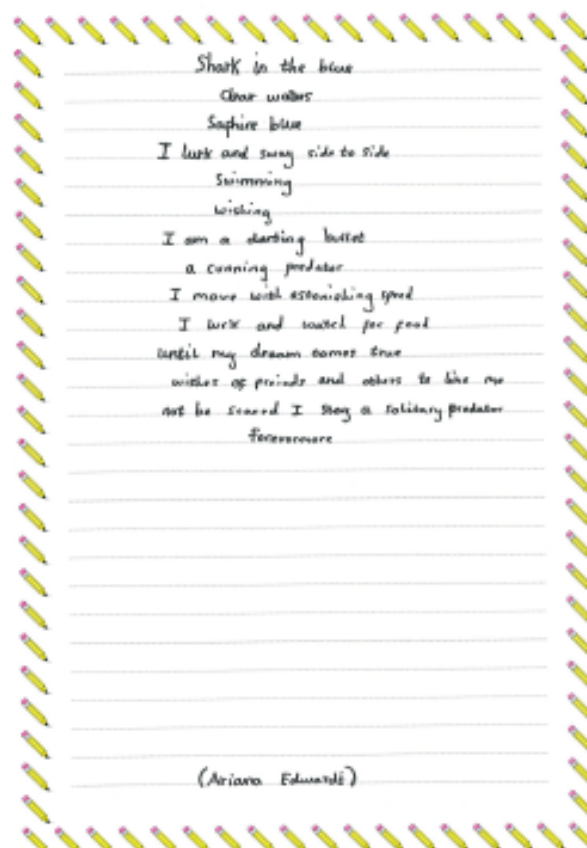 Shark in the blue
Clear waters
Saphire blue
I lurk and sway side to side
Swimming
wishing
I am a darting bullet
a cunning predator
I move with astonishing speed
I lurk and watch for food
until my dream comes true
wishes of freinds and others to like me
not be scared I stay a solitary predator
forevermore
(Ariana Edwards)